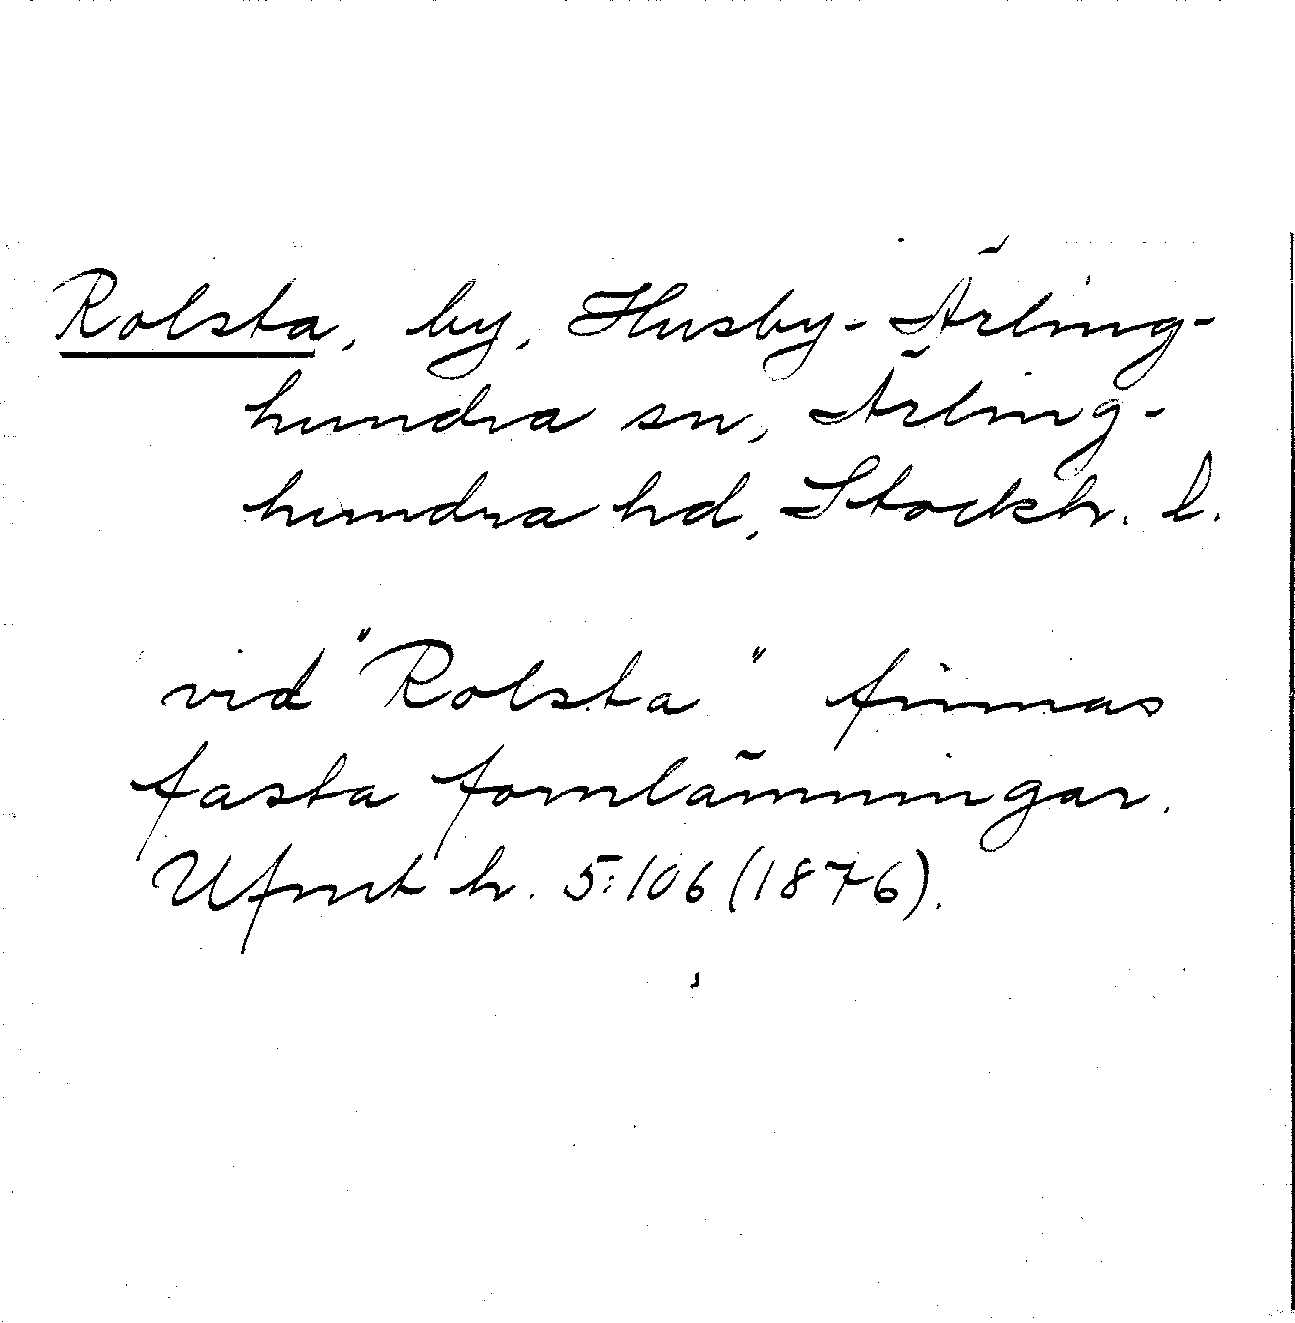 Rolsta, by, Husby-Ärling-
hundra sn, Ärling-
hundra hd, Stockh. l.
vid "Rolsta" finnas
fasta fornlämningar.
Ufmt h. 5:106 (1876).